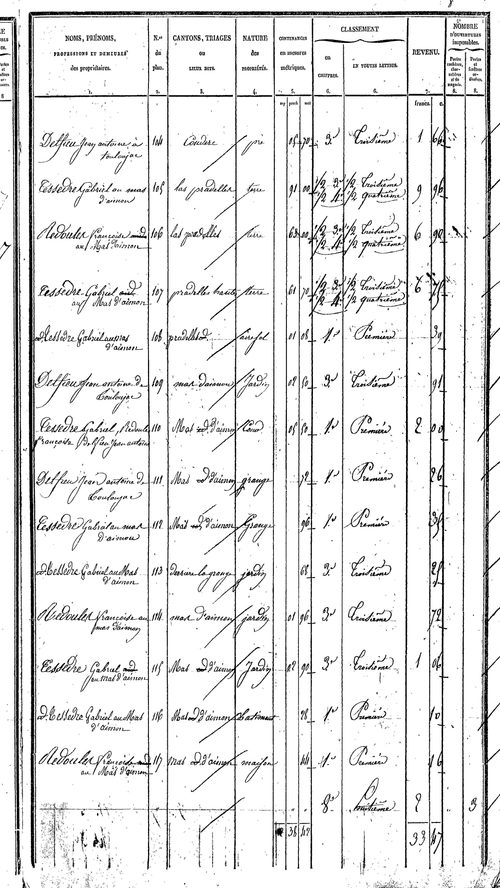 NOMS, PRÉNOMS,
PROFESSIONS ET DEMEURES
des propriétaires.
N.os
du
plan.
CANTONS, TRIAGES
ou
LIEUX DITS.
NATURE
des
PROPRIÉTÉS.
CONTENANCES
EN MESURES
MÉTRIQUES.
CLASSEMENT
EN
CHIFFRES.
EN TOUTES LETTRES.
REVENU.
NOMBRE
D'OUVERTURES
imposables.
1. 2. 3. 4. 5. 6. 6. 7. 8. 8.
francs. c.
Delfieu Jean antoine à 104 Coudere pre 05 70 3e Troisième 1 66
touloujac
Tessedre Gabriel au mas 105 las pradelles terre 91 00 1/2 3e 1/2 Troisième 9 96
d'aimon 1/2 4e 1/2 quatrième
Redoules françoise 106 las pradelles terre 63 00 1/2 3e 1/2 Troisième 6 90
au Mas d'aimon 1/2 4e 1/2 quatrième
Tessedre Gabriel 107 pradelles hautes terre 61 70 1/2 3e 1/2 Troisième 6 75
au Mas d'aimon 1/2 4e 1/2 quatrième
Tessedre Gabriel au mas 108 pradelles 01 08 1e Première 39
d'aimon
Delfieu Jean antoine de 109 mas d'aimon Jardin 02 50 3e Troisième 91
Touloujac
Tessedre Gabriel, Redoules 110 Mas d'aimon Cour 05 50 1e Première 2 00
françoise, Delfieu Jean antoine
Delfieu Jean antoine de 111 Mas d'aimon grange 72 1e Première 26
Touloujac
Tessedre Gabriel au mas 112 Mas d'aimon Grange 96 1e Première 35
d'aimon
Tessedre Gabriel au Mas 113 derriere la grange jardin 68 3e Troisième 25
d'aimon
Redoules françoise au 114 mas d'aimon jardin 01 96 3e Troisième 72
mas d'aimon
Tessedre Gabriel 115 Mas d'aimon Jardin 02 90 3e Troisième 1 06
au mas d'aimon
Tessedre Gabriel au Mas 116 Mas d'aimon Batiment 28 1e Première 10
d'aimon
Redoules françoise 117 mas d'aimon maison 44 1e Première 16
au Mas d'aimon
8e huitième 2 3
38 42 33 47